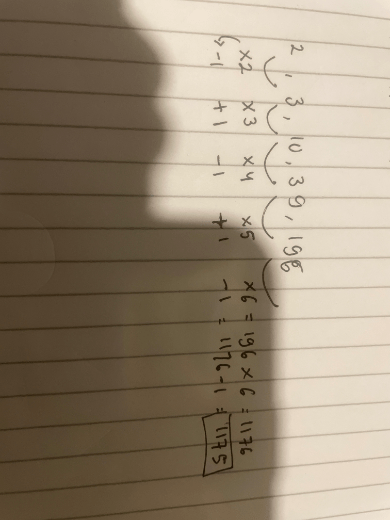 2, 3, 10, 39, 196
×2 ×3 ×4 ×5 ×6 = 196 × 6 = 1176
-1 +1 -1 +1 -1 = 1176 - 1 = 1175